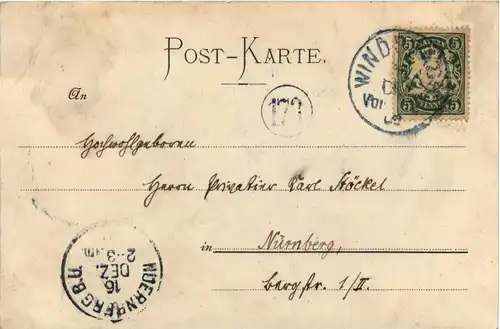 POST-KARTE.
5 5
5 PFENNIG 5
WIND
Vor
17
An
Hochwohlgeboren
Herrn Privatier Carl Stöckel
in Nürnberg,
Bergstr. 1/II.
NUERNBERG B.II
16
DEZ.
2-3.Nm.